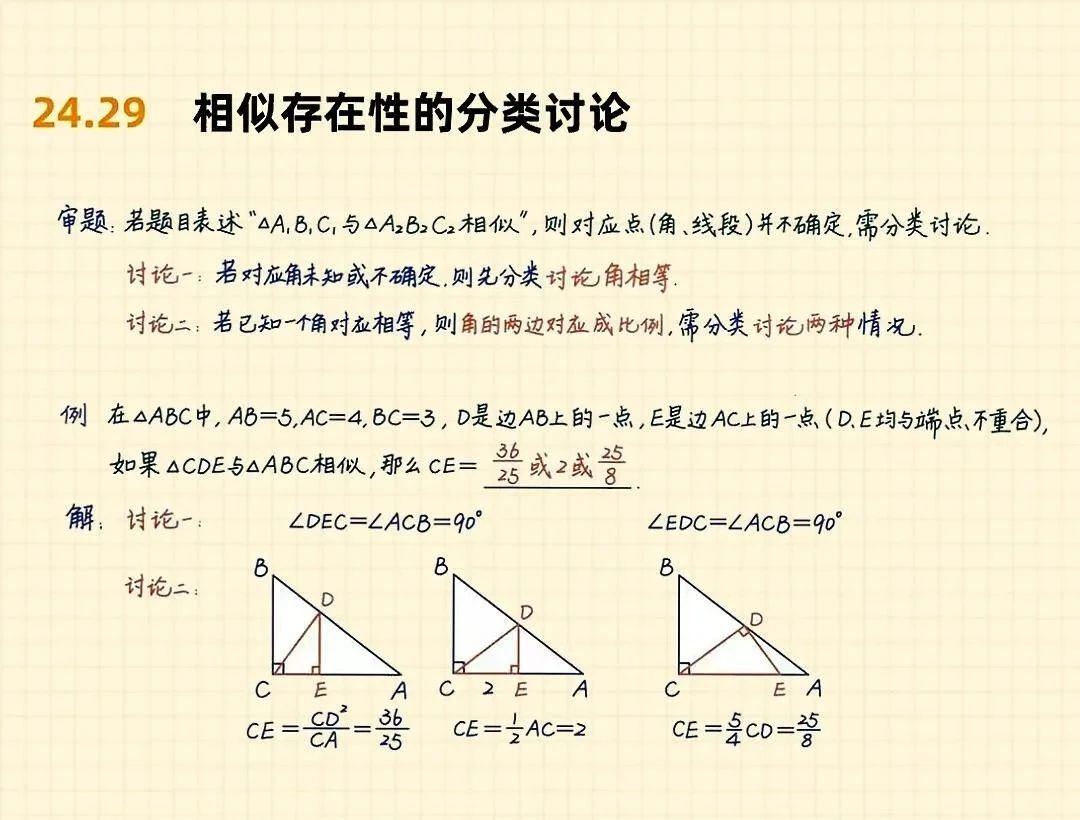 24.29 相似存在性的分类讨论
审题: 若题目表述“△A₁B₁C₁与△A₂B₂C₂相似”,则对应点(角、线段)并不确定,需分类讨论.
讨论一: 若对应角未知或不确定,则先分类讨论角相等.
讨论二: 若已知一个角对应相等,则角的两边对应成比例,需分类讨论两种情况.
例 在△ABC中, AB=5,AC=4,BC=3, D是边AB上的一点,E是边AC上的一点(D、E均与端点不重合),
如果△CDE与△ABC相似,那么CE= 36/25 或2或 25/8 .
解: 讨论一: ∠DEC=∠ACB=90° ∠EDC=∠ACB=90°
讨论二:
B D C E A
B D C 2 E A
B D C E A
CE=CD²/CA=36/25 CE=1/2AC=2 CE=5/4CD=25/8